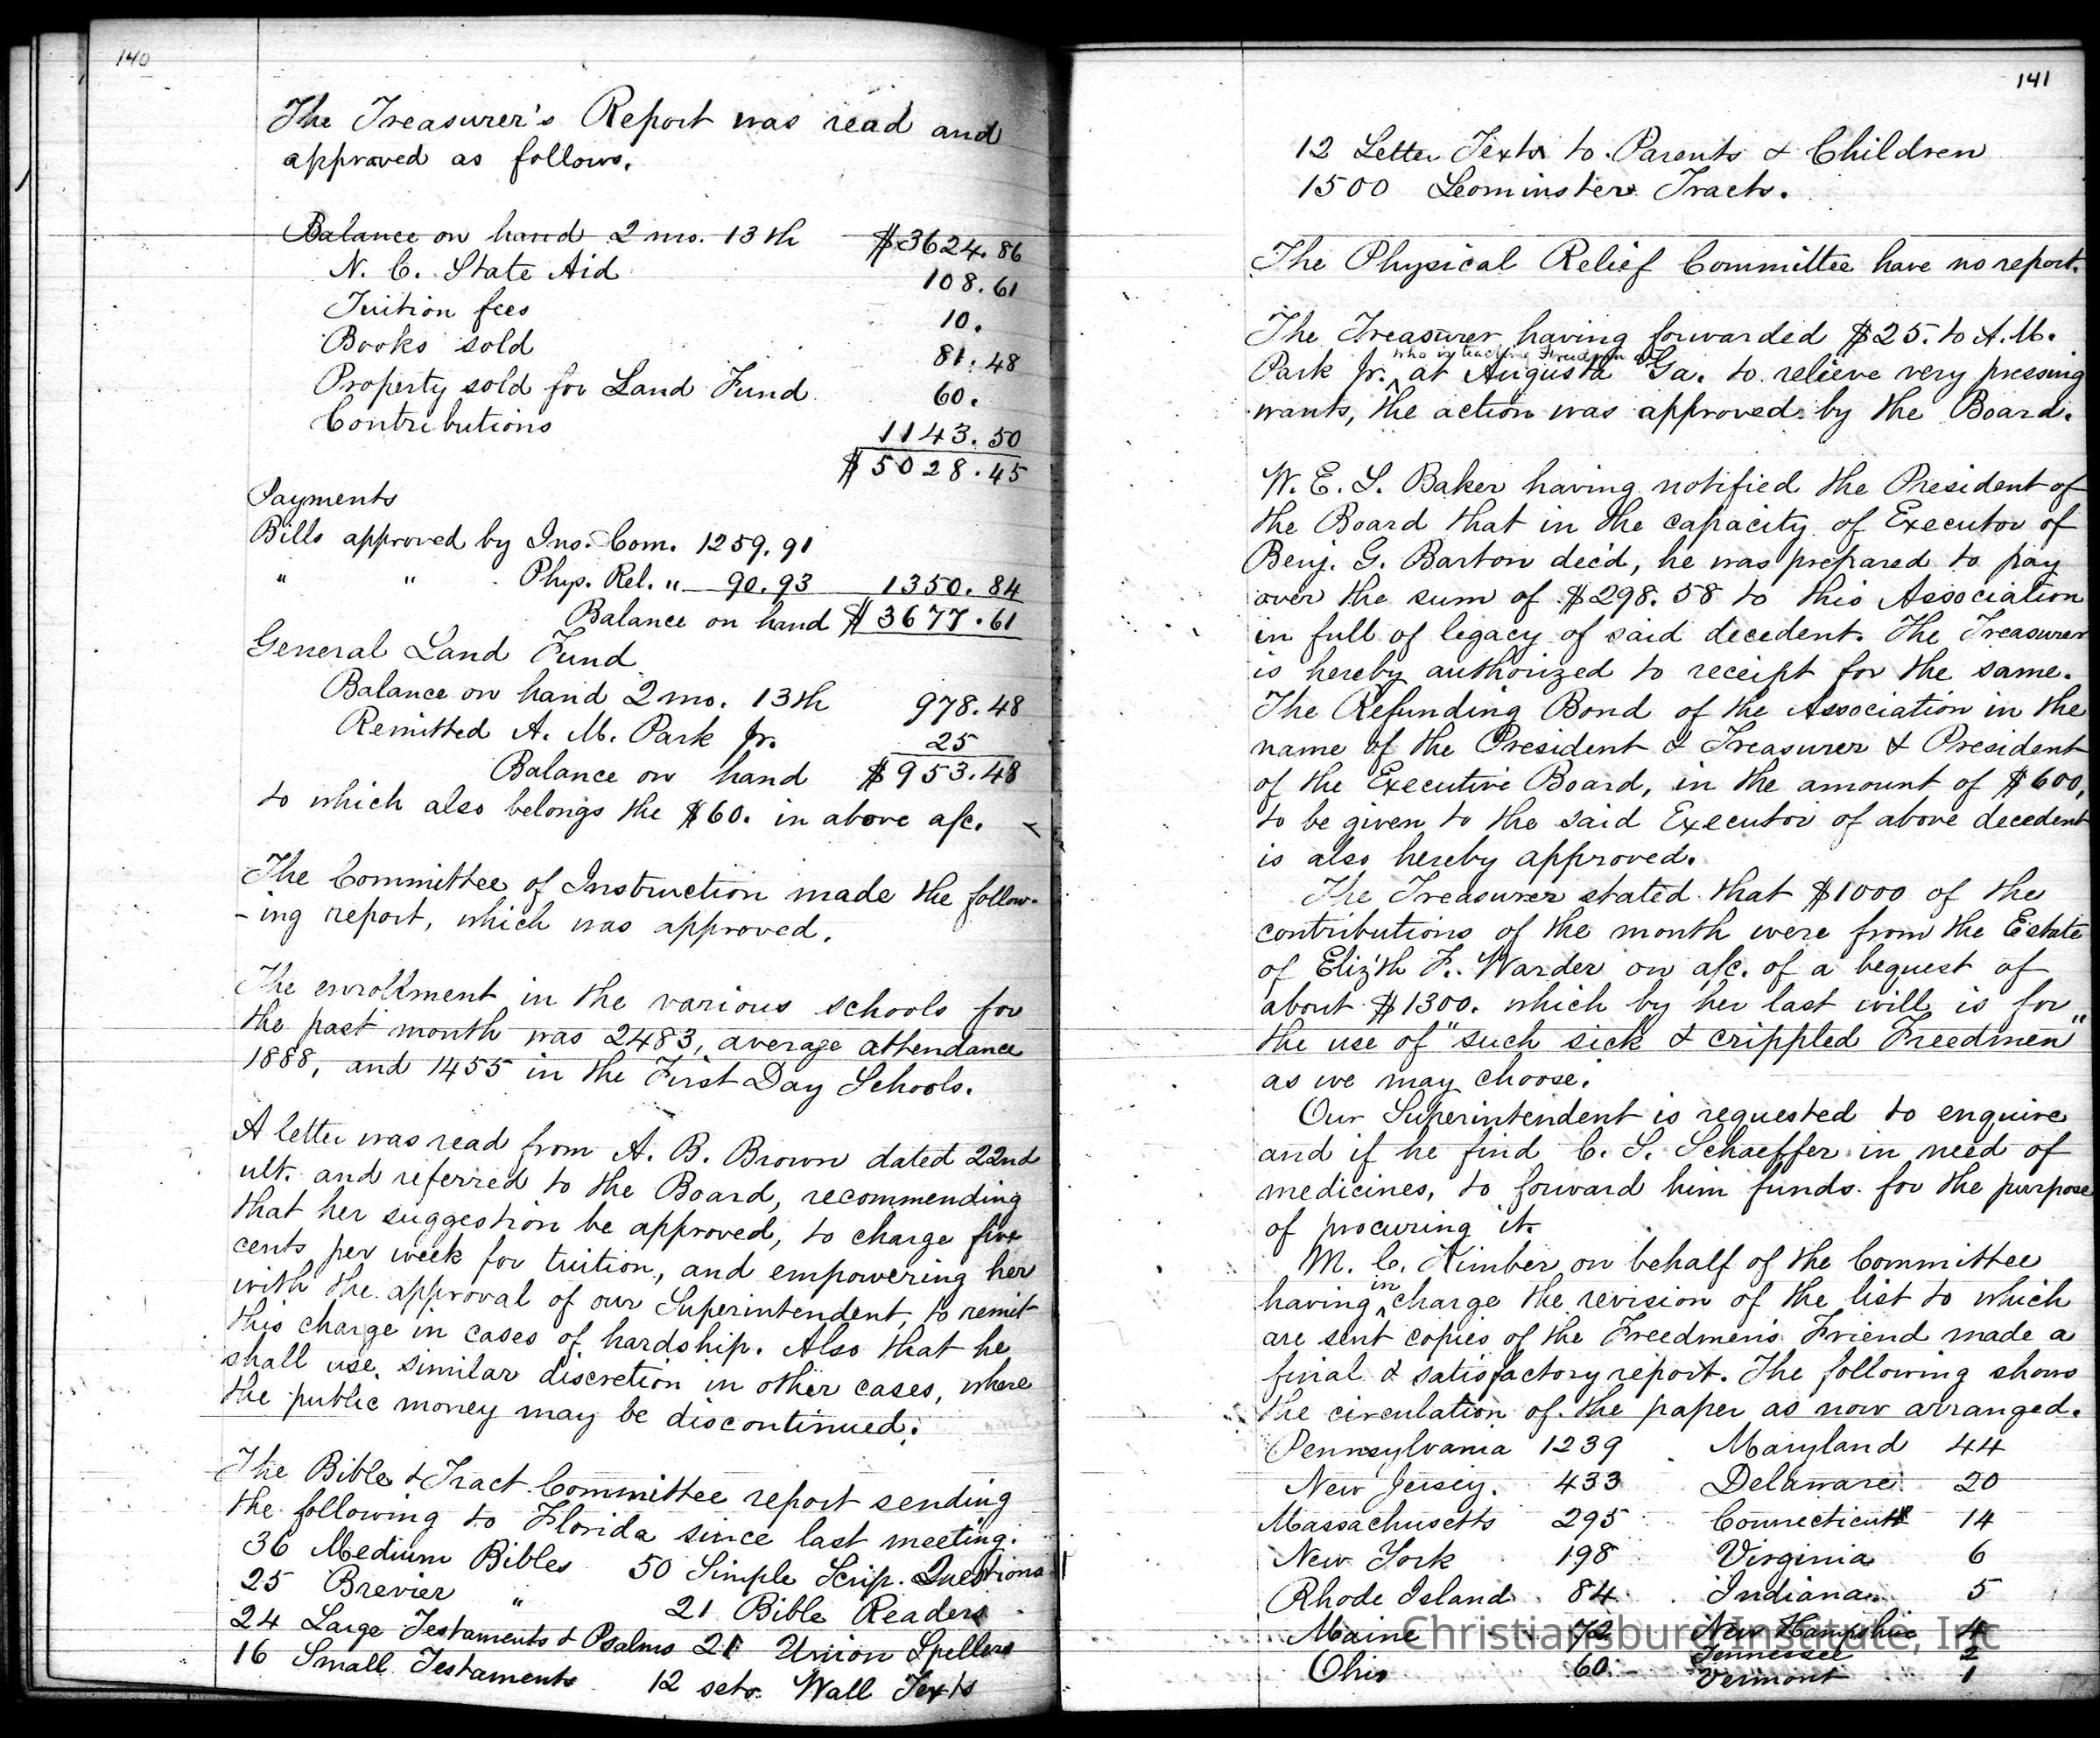 140
The Treasurer's Report was read and
approved as follows.
Balance on hand 2 mo. 13th $3624.86
N. C. State Aid 108.61
Tuition fees 10.
Books sold 81.48
Property sold for Land Fund 60.
Contributions 1143.50
$5028.45
Payments
Bills approved by Ins. Com. 1259.91
" " Phys. Rel. " 90.93 1350.84
Balance on hand $3677.61
General Land Fund
Balance on hand 2 mo. 13th 978.48
Remitted A. M. Park Jr. 25
Balance on hand $953.48
to which also belongs the $60. in above a/c.
The Committee of Instruction made the follow-
-ing report, which was approved.
The enrollment in the various schools for
the past month was 2483, average attendance
1888, and 1455 in the First Day Schools.
A letter was read from A. B. Brown dated 22nd
ult. and referred to the Board, recommending
that her suggestion be approved, to charge five
cents per week for tuition, and empowering her
with the approval of our Superintendent, to remit
this charge in cases of hardship. Also that he
shall use similar discretion in other cases, where
the public money may be discontinued.
The Bible & Tract Committee report sending
the following to Florida since last meeting.
36 Medium Bibles 50 Simple Scrip. Questions
25 Brevier " 21 Bible Readers
24 Large Testaments & Psalms 21 Union Spellers
16 Small Testaments 12 sets Wall Texts
141
12 Letter Texts to Parents & Children
1500 Leominster Tracts.
The Physical Relief Committee have no report.
The Treasurer having forwarded $25. to A. M.
who is teaching Freedmen
Park Jr. ^ at Augusta Ga. to relieve very pressing
wants, the action was approved by the Board.
W. E. S. Baker having notified the President of
the Board that in the capacity of Executor of
Benj. G. Barton dec'd, he was prepared to pay
over the sum of $298.58 to this Association
in full of legacy of said decedent. The Treasurer
is hereby authorized to receipt for the same.
The Refunding Bond of the Association in the
name of the President & Treasurer & President
of the Executive Board, in the amount of $600,
to be given to the said Executor of above decedent
is also hereby approved.
The Treasurer stated that $1000 of the
contributions of the month were from the Estate
of Eliz'th F. Warder on a/c. of a bequest of
about $1300. which by her last will is for
the use of "such sick & crippled Freedmen"
as we may choose.
Our Superintendent is requested to enquire
and if he find C. S. Schaeffer in need of
medicines, to forward him funds for the purpose
of procuring it.
M. C. Kimber on behalf of the Committee
in
having ^ charge the revision of the list to which
are sent copies of the Freedmen's Friend made a
final & satisfactory report. The following shows
the circulation of the paper as now arranged.
Pennsylvania 1239 Maryland 44
New Jersey. 433 Delaware 20
Massachusetts 295 Connecticut 14
New York 198 Virginia 6
Rhode Island 84 Indiana 5
Maine 72 New Hampshire 4
Tennessee 2
Ohio 60 Vermont 1
Christiansburg Institute, Inc